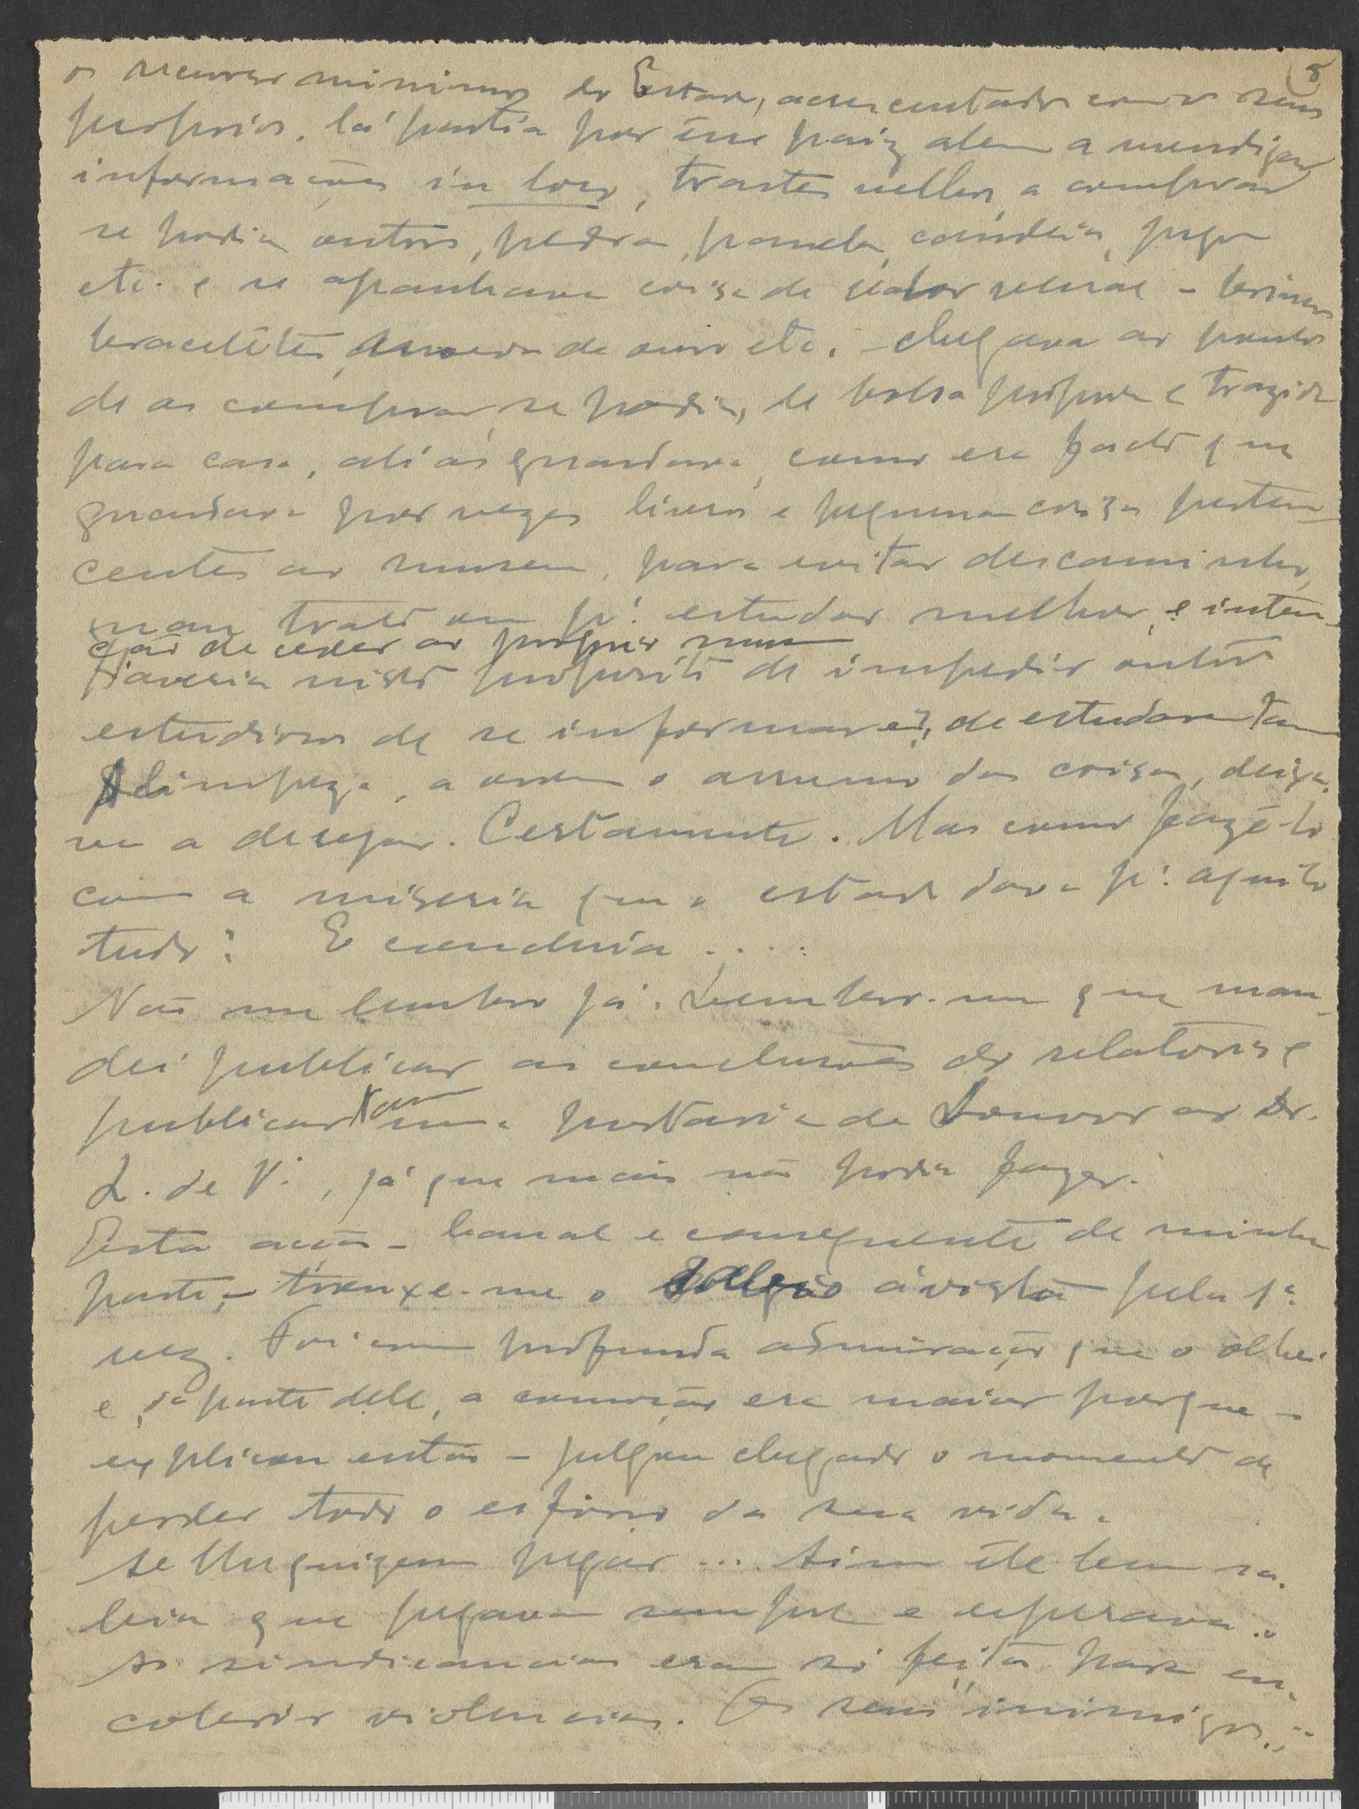 8
os recursos minimos do Estado, acrescentados com os seus
proprios, lá partia por esse paiz alem a mendigar
informações in loco, trastes velhos, a comprar
se podia outros, pedra, panela, candeia, jugo
etc. e se apanhava coisa de valor real – brincos
braceletes, moeda de ouro etc. – chegava ao ponto
de as comprar, se podia, de bolsa propria e trazidas
para casa, ali as guardava, como era facto que
guardava por vezes livros e pequenas coisas perten-
centes ao museu, para evitar descaminho,
mau trato ou p.ª estudar melhor, e inten-
ção de ceder ao proprio museu
Haveria nisto proposito de impedir outros
estudiosos de se informarem, de estudarem tam
A limpeza, a ordem o arrumo das coisas, deixa-
va a desejar. Certamente. Mas como fazê-lo
com a miseria que o estado dava p.ª aquilo
tudo? E concluia .....
Não me lembro já. Lembro-me que man-
dei publicar as conclusões do relatorio e
publicar tam uma portaria de Louvor ao Dr.
L. de V., já que mais não podia fazer.
Esta acção – banal e consequente de minha
parte, – trouxe-me o á vista pela 1ª
vez. Foi com profunda admiração que o olhei
e, da parte dele, a comoção era maior porque –
explicou então – julgou chegado o momento de
perder todo o esforço da sua vida.
Se lhe quizeram pegar ... Sim êle bem sa-
bia que pegavam sempre e esperava..
As sindicancias eram só feitas para en-
cobrir violencias. Os seus "inimigos"..